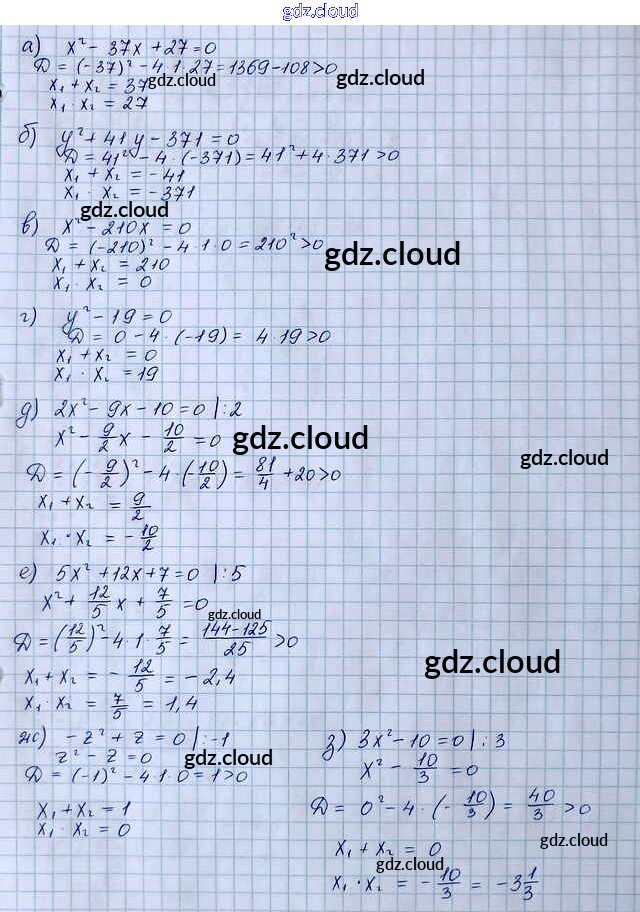 gdz.cloud
а) x² - 37x + 27 = 0
D = (-37)² - 4·1·27 = 1369 - 108 > 0
gdz.cloud
gdz.cloud
x₁ + x₂ = 37
x₁ · x₂ = 27
б) y² + 41y - 371 = 0
D = 41² - 4·(-371) = 41² + 4·371 > 0
x₁ + x₂ = -41
x₁ · x₂ = -371
gdz.cloud
в) x² - 210x = 0
D = (-210)² - 4·1·0 = 210² > 0
gdz.cloud
x₁ + x₂ = 210
x₁ · x₂ = 0
г) y² - 19 = 0
D = 0 - 4·(-19) = 4·19 > 0
x₁ + x₂ = 0
x₁ · x₂ = 19
д) 2x² - 9x - 10 = 0 |:2
x² - 9/2 x - 10/2 = 0
gdz.cloud
gdz.cloud
D = (-9/2)² - 4·(-10/2) = 81/4 + 20 > 0
x₁ + x₂ = 9/2
x₁ · x₂ = -10/2
е) 5x² + 12x + 7 = 0 |:5
x² + 12/5 x + 7/5 = 0
gdz.cloud
D = (12/5)² - 4·1·7/5 = 144-125/25 > 0
gdz.cloud
x₁ + x₂ = -12/5 = -2,4
x₁ · x₂ = 7/5 = 1,4
ж) -z² + z = 0 |:-1
z² - z = 0
gdz.cloud
D = (-1)² - 4·1·0 = 1 > 0
x₁ + x₂ = 1
x₁ · x₂ = 0
з) 3x² - 10 = 0 |:3
x² - 10/3 = 0
D = 0² - 4·(-10/3) = 40/3 > 0
gdz.cloud
x₁ + x₂ = 0
gdz.cloud
x₁ · x₂ = -10/3 = -3 1/3
gdz.cloud